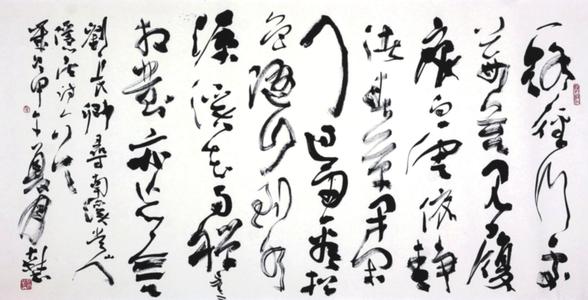 一路經行處
莓苔見履
痕白雲依靜
渚春草閉閒
門過雨看松
色隨山到水
源溪花與禪意
相對亦忘言
劉長卿尋南溪常山人
隱居詩
甲午夏月